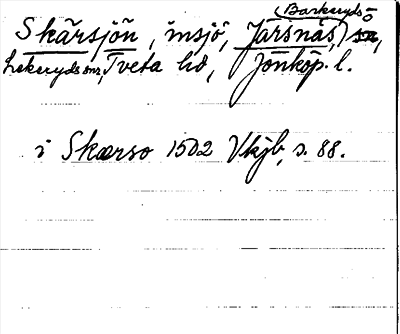 (Barkeryds
Skärsjön, insjö, Järsnäs,) sn,
Lekeryds snr, Tveta hd, Jönköp. l.
i Skærso 1502 Vkjb, s. 88.